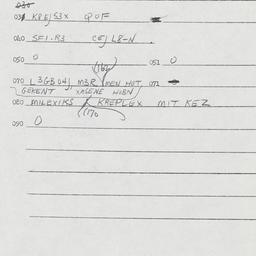 030
031 KPEJS3X QOF
040 SF1.R3 CEJ L8-N
050 0 051 0
(160
070 L3GB04J M3R MEN HOT 071
GEKENT XALENE WIBN
080 MILEXIKS KREPLEX MIT KEZ
(170
090 0